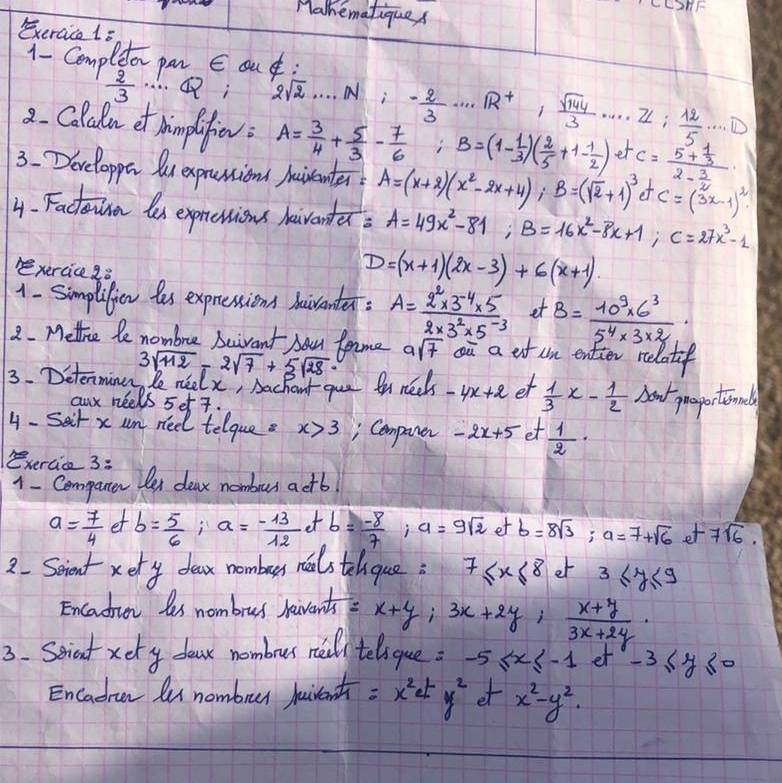 Mathématiques
Exercice 1:
1- Compléter par ∈ ou ∉ :
2/3 .... Q ; 2√2 .... N ; -2/3 .... R⁺ ; √144/3 .... Z ; 12/5 .... D
2- Calculer et simplifier : A = 3/4 + 5/3 - 7/6 ; B = (1 - 1/3)(2/5 + 1 - 1/2) et C = (5 + 1/3)/(2 - 3/2).
3- Développer les expressions suivantes : A = (x+2)(x²-2x+4) ; B = (√2+1)³ et C = (3x-1)².
4- Factoriser les expressions suivantes : A = 49x²-81 ; B = 16x²-8x+1 ; C = 27x³-1
D = (x+1)(2x-3) + 6(x+1).
Exercice 2:
1- Simplifier les expressions suivantes : A = (2² x 3⁻⁴ x 5)/(2 x 3² x 5⁻³) et B = (10⁹ x 6³)/(5⁴ x 3 x 2).
2- Mettre le nombre suivant sous forme a√7 où a est un entier relatif
3√112 - 2√7 + 5√28.
3- Déterminer le réel x, sachant que les réels -4x+2 et 1/3 x - 1/2 sont proportionnels
aux réels 5 et 7.
4- Soit x un réel telque : x>3 ; Comparer -2x+5 et 1/2.
Exercice 3:
1- Comparer les deux nombres a et b.
a = 7/4 et b = 5/6 ; a = -13/12 et b = -8/7 ; a = 9√2 et b = 8√3 ; a = 7+√6 et 7√6.
2- Soient x et y deux nombres réels telsque : 7 ⩽ x ⩽ 8 et 3 ⩽ y ⩽ 9
Encadrer les nombres suivants : x+y ; 3x+2y ; (x+y)/(3x+2y).
3- Soient x et y deux nombres réels telsque : -5 ⩽ x ⩽ -1 et -3 ⩽ y ⩽ 0
Encadrer les nombres suivants : x² et y² et x²-y².